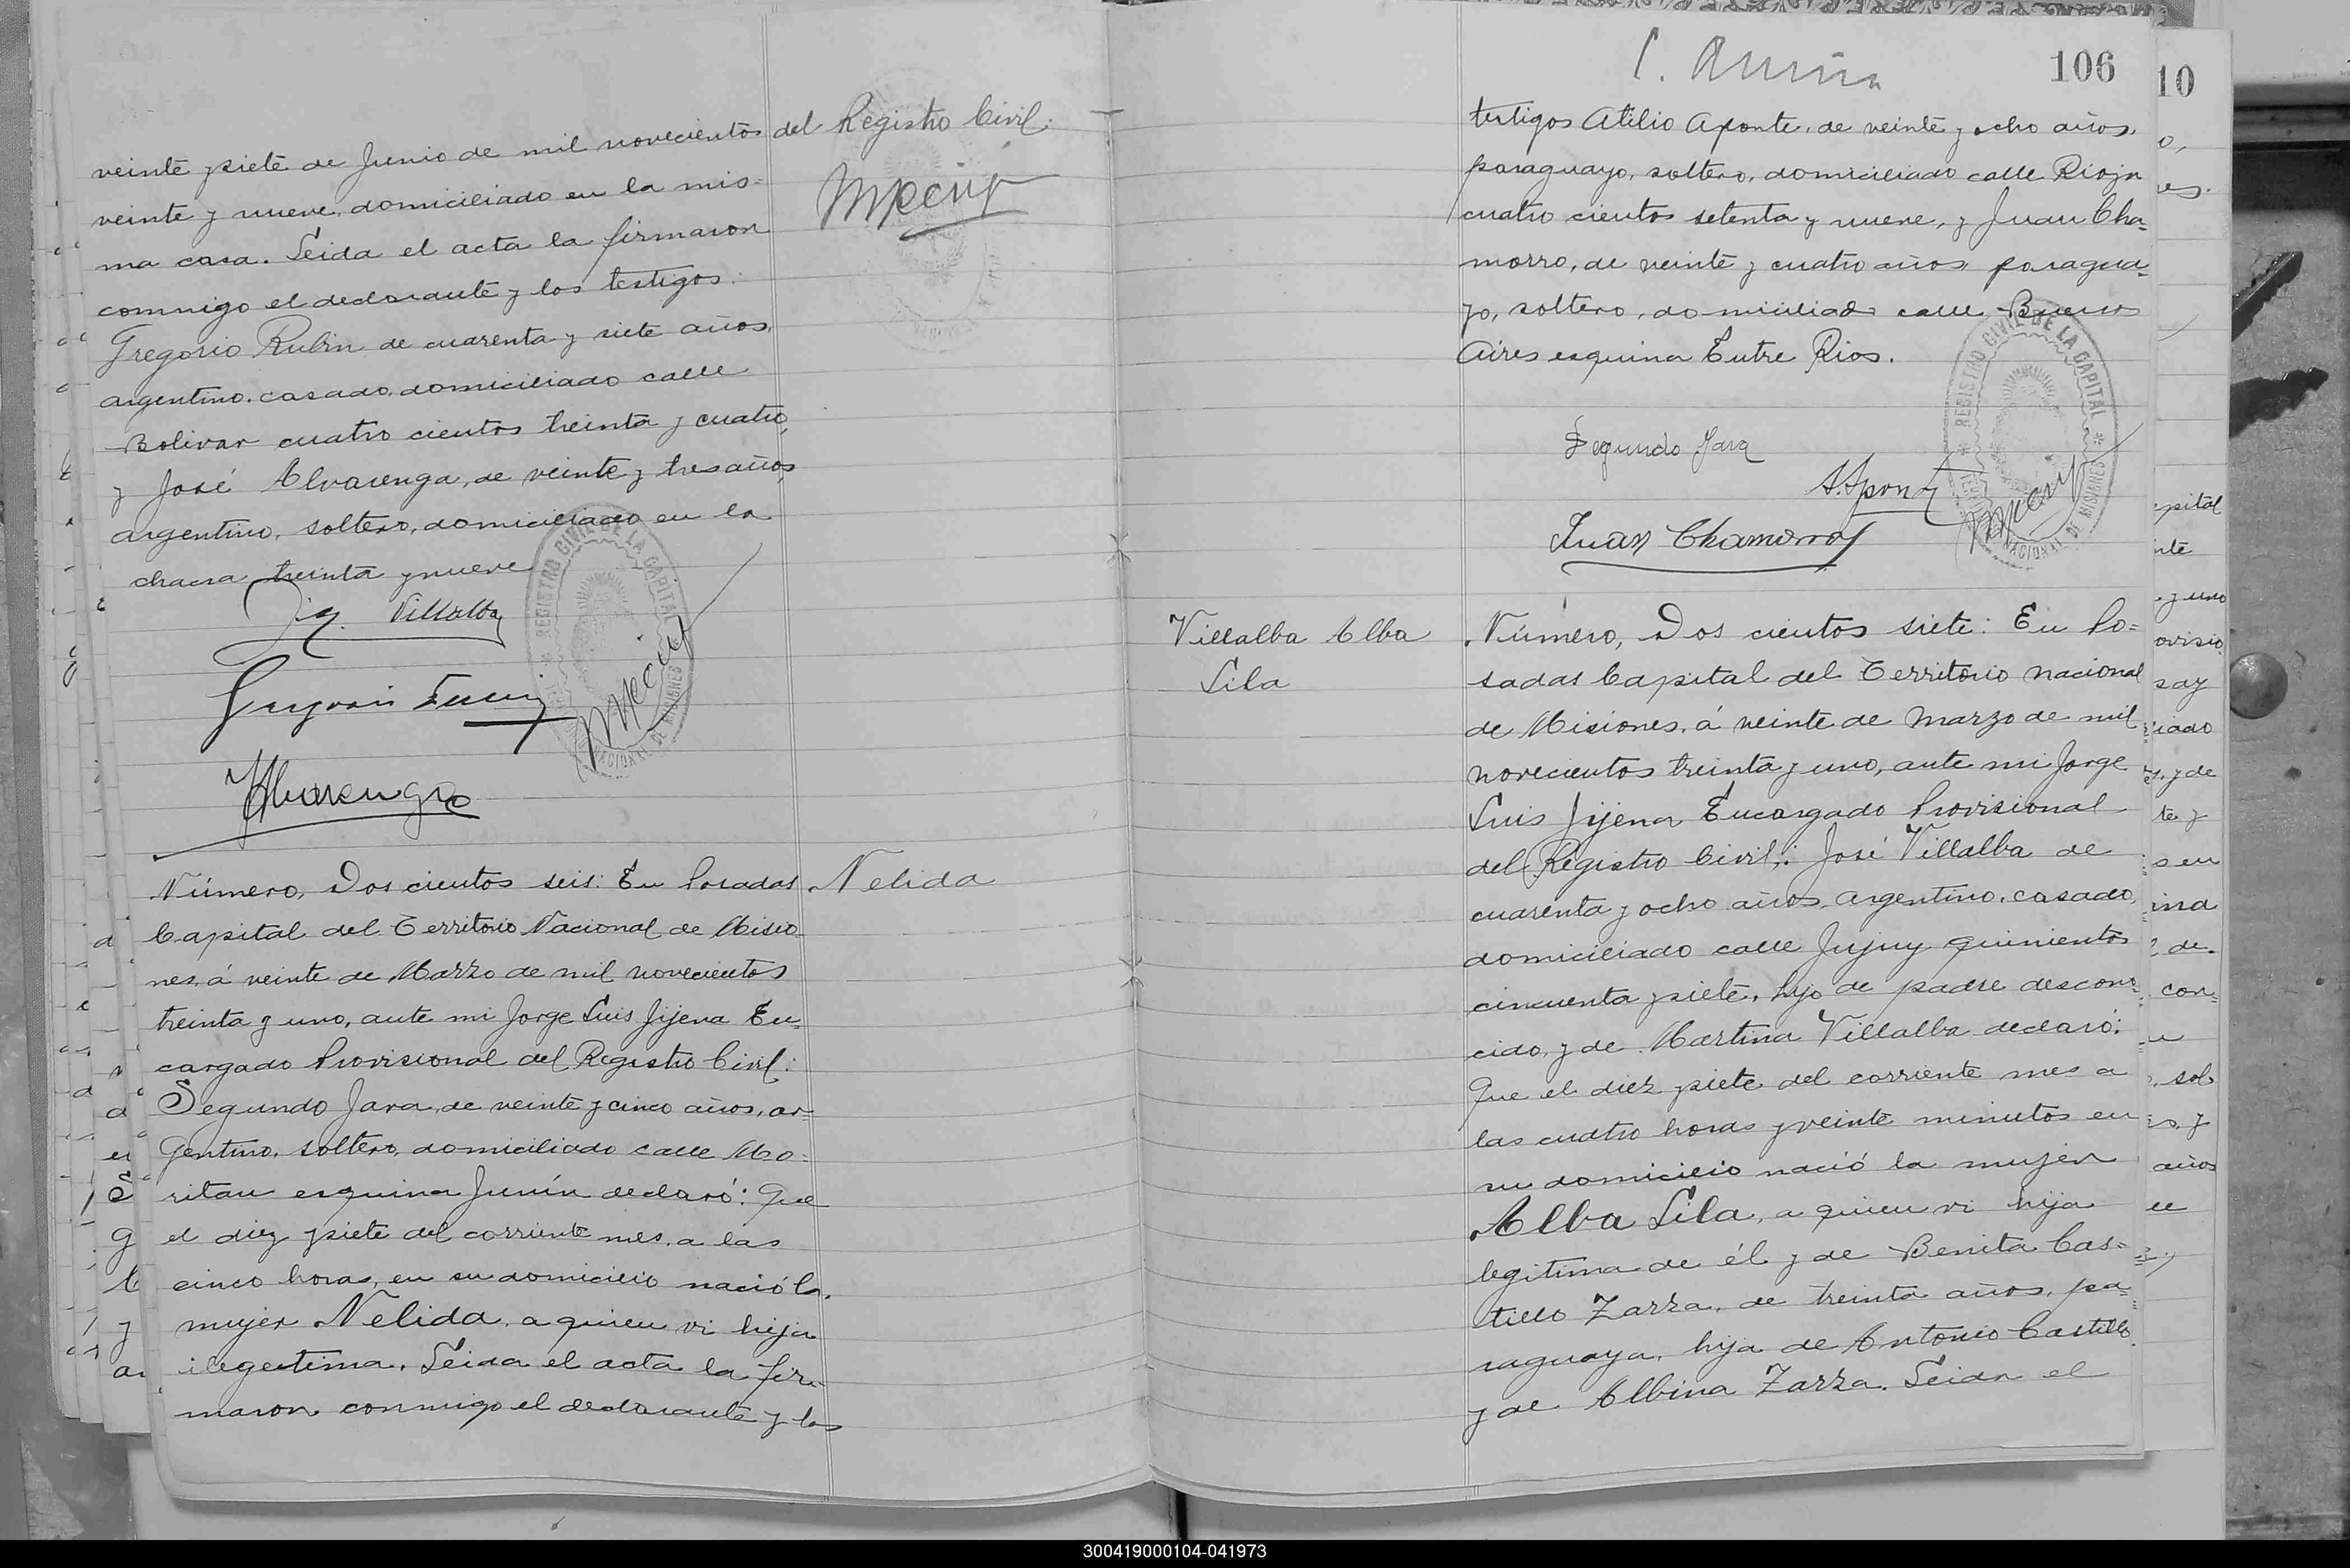 veinte y siete de Junio de mil novecientos del Registro Civil.
veinte y nueve, domiciliado en la mis=
ma casa. Leida el acta la firmaron
conmigo el declarante y los testigos:
Gregorio Rubin de cuarenta y siete años,
argentino, casado, domiciliado calle
Bolivar cuatro cientos treinta y cuatro,
y José Alvarenga, de veinte y tres años,
argentino, soltero, domiciliado en la
chacra treinta y nueve
Villalba
REGISTRO CIVIL DE LA CAPITAL
NACIONAL DE MISIONES
Alvarenga
Número, Dos cientos seis: En Posadas
Capital del Territorio Nacional de Misio
nes, á veinte de Marzo de mil novecientos
treinta y uno, ante mi Jorge Luis Jijena En=
cargado Provisional del Registro Civil:
Segundo Jara, de veinte y cinco años, ar=
gentino, soltero, domiciliado calle Mo=
ritan esquina Junín declaró: Que
el diez y siete del corriente mes, a las
cinco horas, en su domicilio nació la
mujer Nelida, a quien vi hija
ilegertima. Leida el acta la fir=
maron conmigo el declarante y los
Nelida
106
testigos Atilio Aponte, de veinte y ocho años,
paraguayo, soltero, domiciliado calle Rioja
cuatro cientos setenta y nueve, y Juan Cha=
morro, de veinte y cuatro años, paragua=
yo, soltero, domiciliado calle Buenos
Aires esquina Entre Rios.
Segundo Jara
A. Aponte
Juan Chamorro
REGISTRO CIVIL DE LA CAPITAL
NACIONAL DE MISIONES
Villalba Alba
Lila
Número, Dos cientos siete: En Po=
sadas Capital del Territorio Nacional
de Misiones, á veinte de Marzo de mil
novecientos treinta y uno, ante mi Jorge
Luis Jijena Encargado Provisional
del Registro Civil,: José Villalba de
cuarenta y ocho años, argentino, casado,
domiciliado calle Jujuy quinientos
cincuenta y siete, hijo de padre descono=
cido, y de Martina Villalba declaró:
Que el diez y siete del corriente mes a
las cuatro horas y veinte minutos en
su domicilio nació la mujer
Alba Lila, a quien vi hija
legitima de él y de Benita Cas=
tillo Zarza, de treinta años, pa=
raguaya, hija de Antonio Castillo
y de Albina Zarza. Leida el
10
300419000104-041973